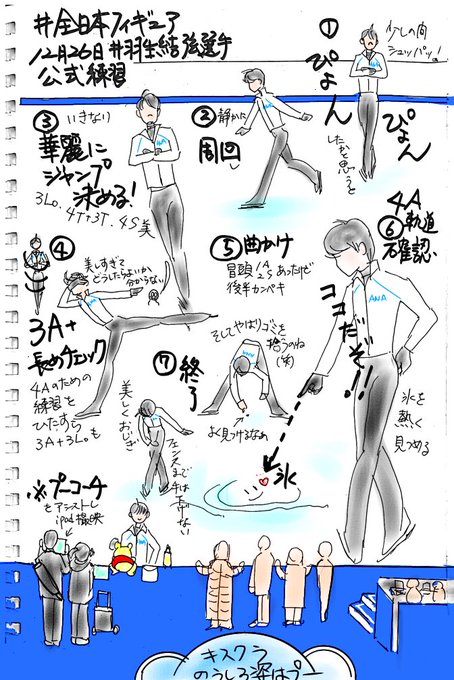 #全日本フィギュア
12月26日#羽生結弦選手
公式練習
少しの間
シュパッ!
①
ぴょん
ぴょん
したかと思うと
②静かに
周回し
③いきなり
華麗に
ジャンプ
決める!
3Lo、4T+3T、4S美
④
美しすぎて
どうしたらよいか
分からない
3A+
長めチェック
4Aのための
練習を
ひたすら
3A+3Loも
⑤曲かけ
冒頭4A
4Sあったけど
後半カンペキ
4A
⑥軌道
確認、
ココだぞ!!
氷を
熱く
見つめる
氷
⑦終了
そしてやはりゴミを
拾うのね
(笑)
よく見つけるなぁ
美しくおじぎ
フェンスまで
手は下げない
※プーコーチ
をアシストし
ipad撮影
ANA
キスクラ
のうしろ深はプー